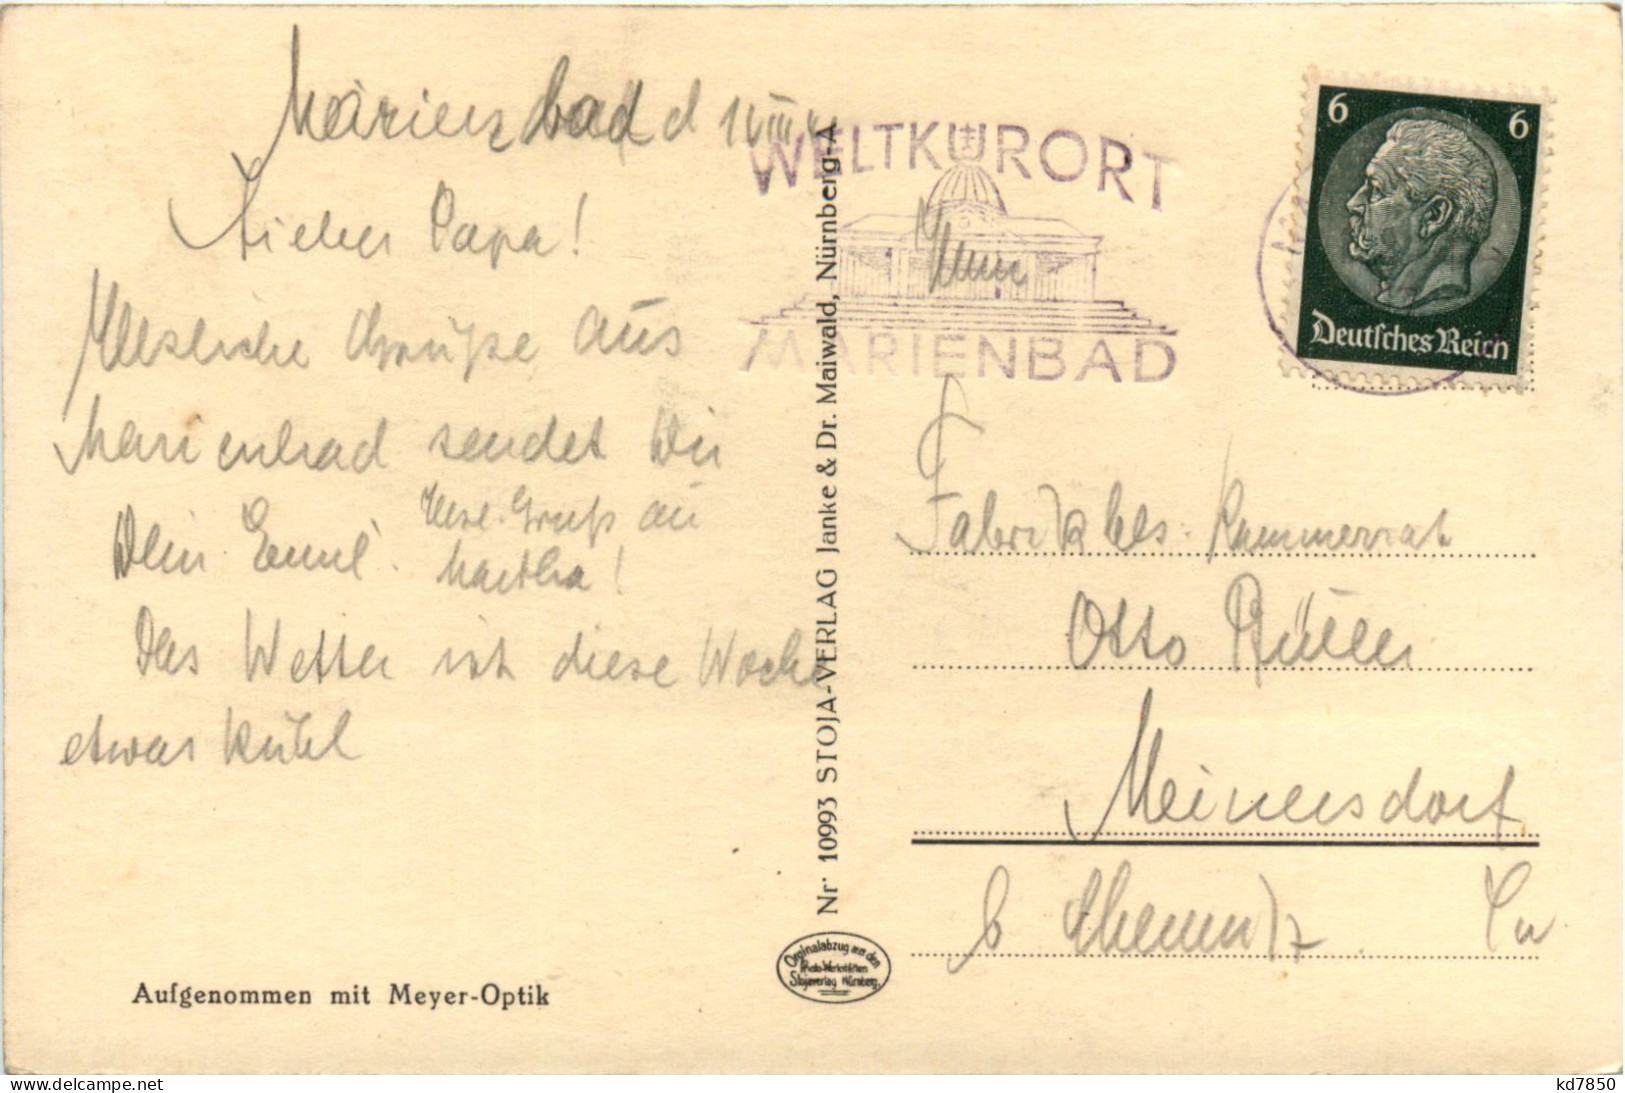 Marienbad d
Lieber Papa!
Herzliche Grüße aus
Marienbad sendet Dir
Dein Emil.
Herzl. Gruß an
Martha!
Das Wetter ist diese Woche
etwas kühl
Aufgenommen mit Meyer-Optik
Nr. 10993 STOJA-VERLAG Janke & Dr. Maiwald, Nürnberg-A
Originalabzug aus den
Photo-Werkstätten
Stojaverlag Nürnberg.
WELTKURORT
MARIENBAD
Herrn
6 6
Deutsches Reich
Fabrikbes. Kammerrat
Otto
Meinersdorf
b Chemnitz
kd7850